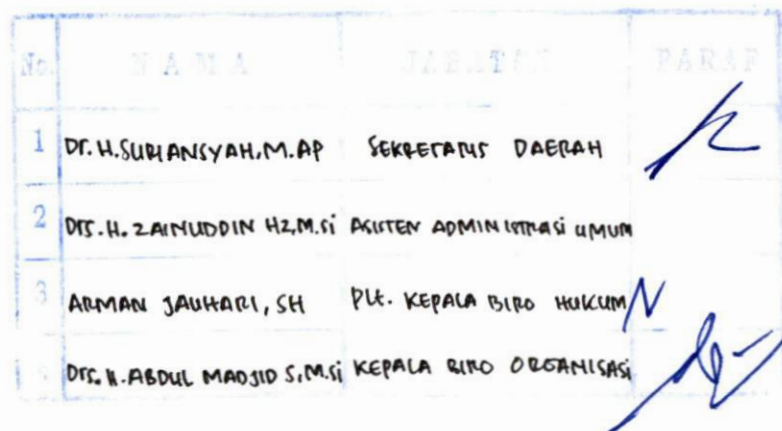 No. N A M A JABATAN PARAF
1 Dr. H. SURIANSYAH, M.AP SEKRETARIS DAERAH
2 Drs. H. ZAINUDDIN HZ, M.Si ASISTEN ADMINISTRASI UMUM
3 ARMAN JAUHARI, SH Plt. KEPALA BIRO HUKUM
Drs. H. ABDUL MADJID S, M.Si KEPALA BIRO ORGANISASI